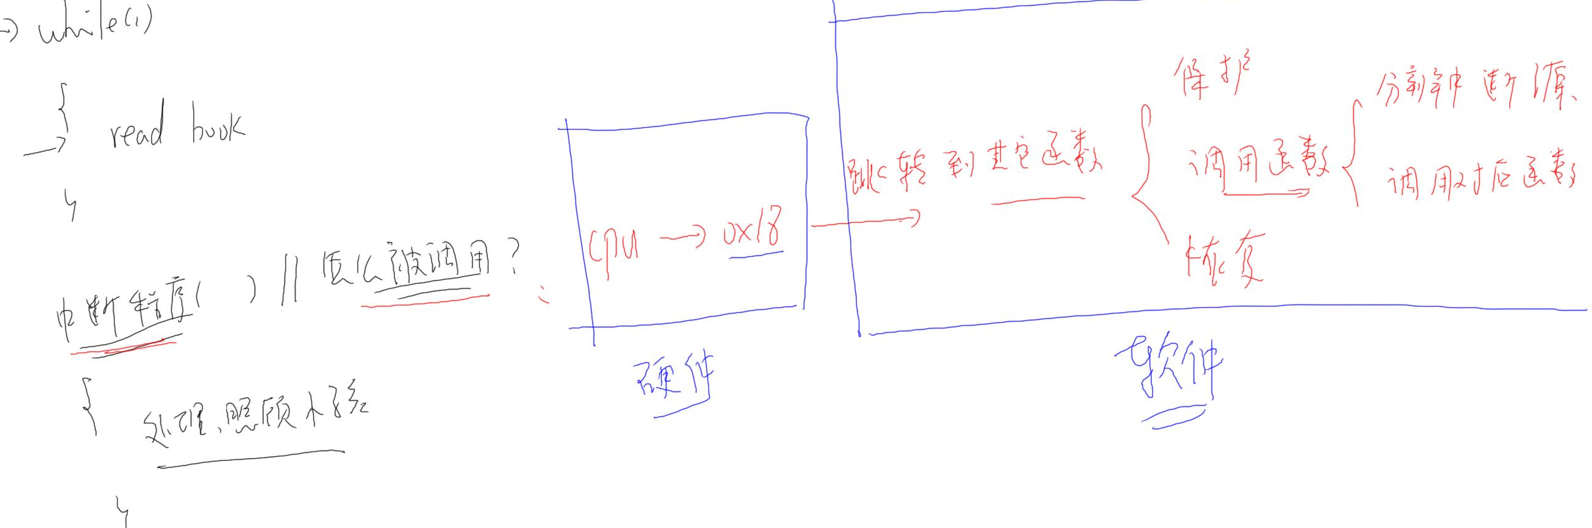 → while(1)
{
→ read book
}
中断程序( ) // 怎么被调用?
{
处理、照顾小孩
}
:
CPU → 0x18
硬件
跳转到其它函数
{
保护
调用函数
恢复
{
分辨中断源、
调用对应函数
软件